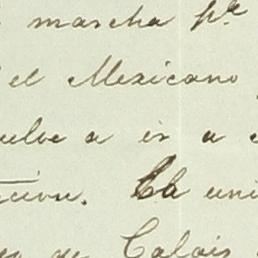 marcha pr.
el Mexicano
uelve a ir a
cion. La uni
de Calais